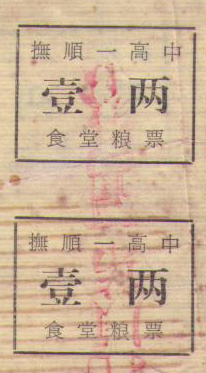 撫順一高中
壹 两
食堂粮票
撫順一高中
壹 两
食堂粮票